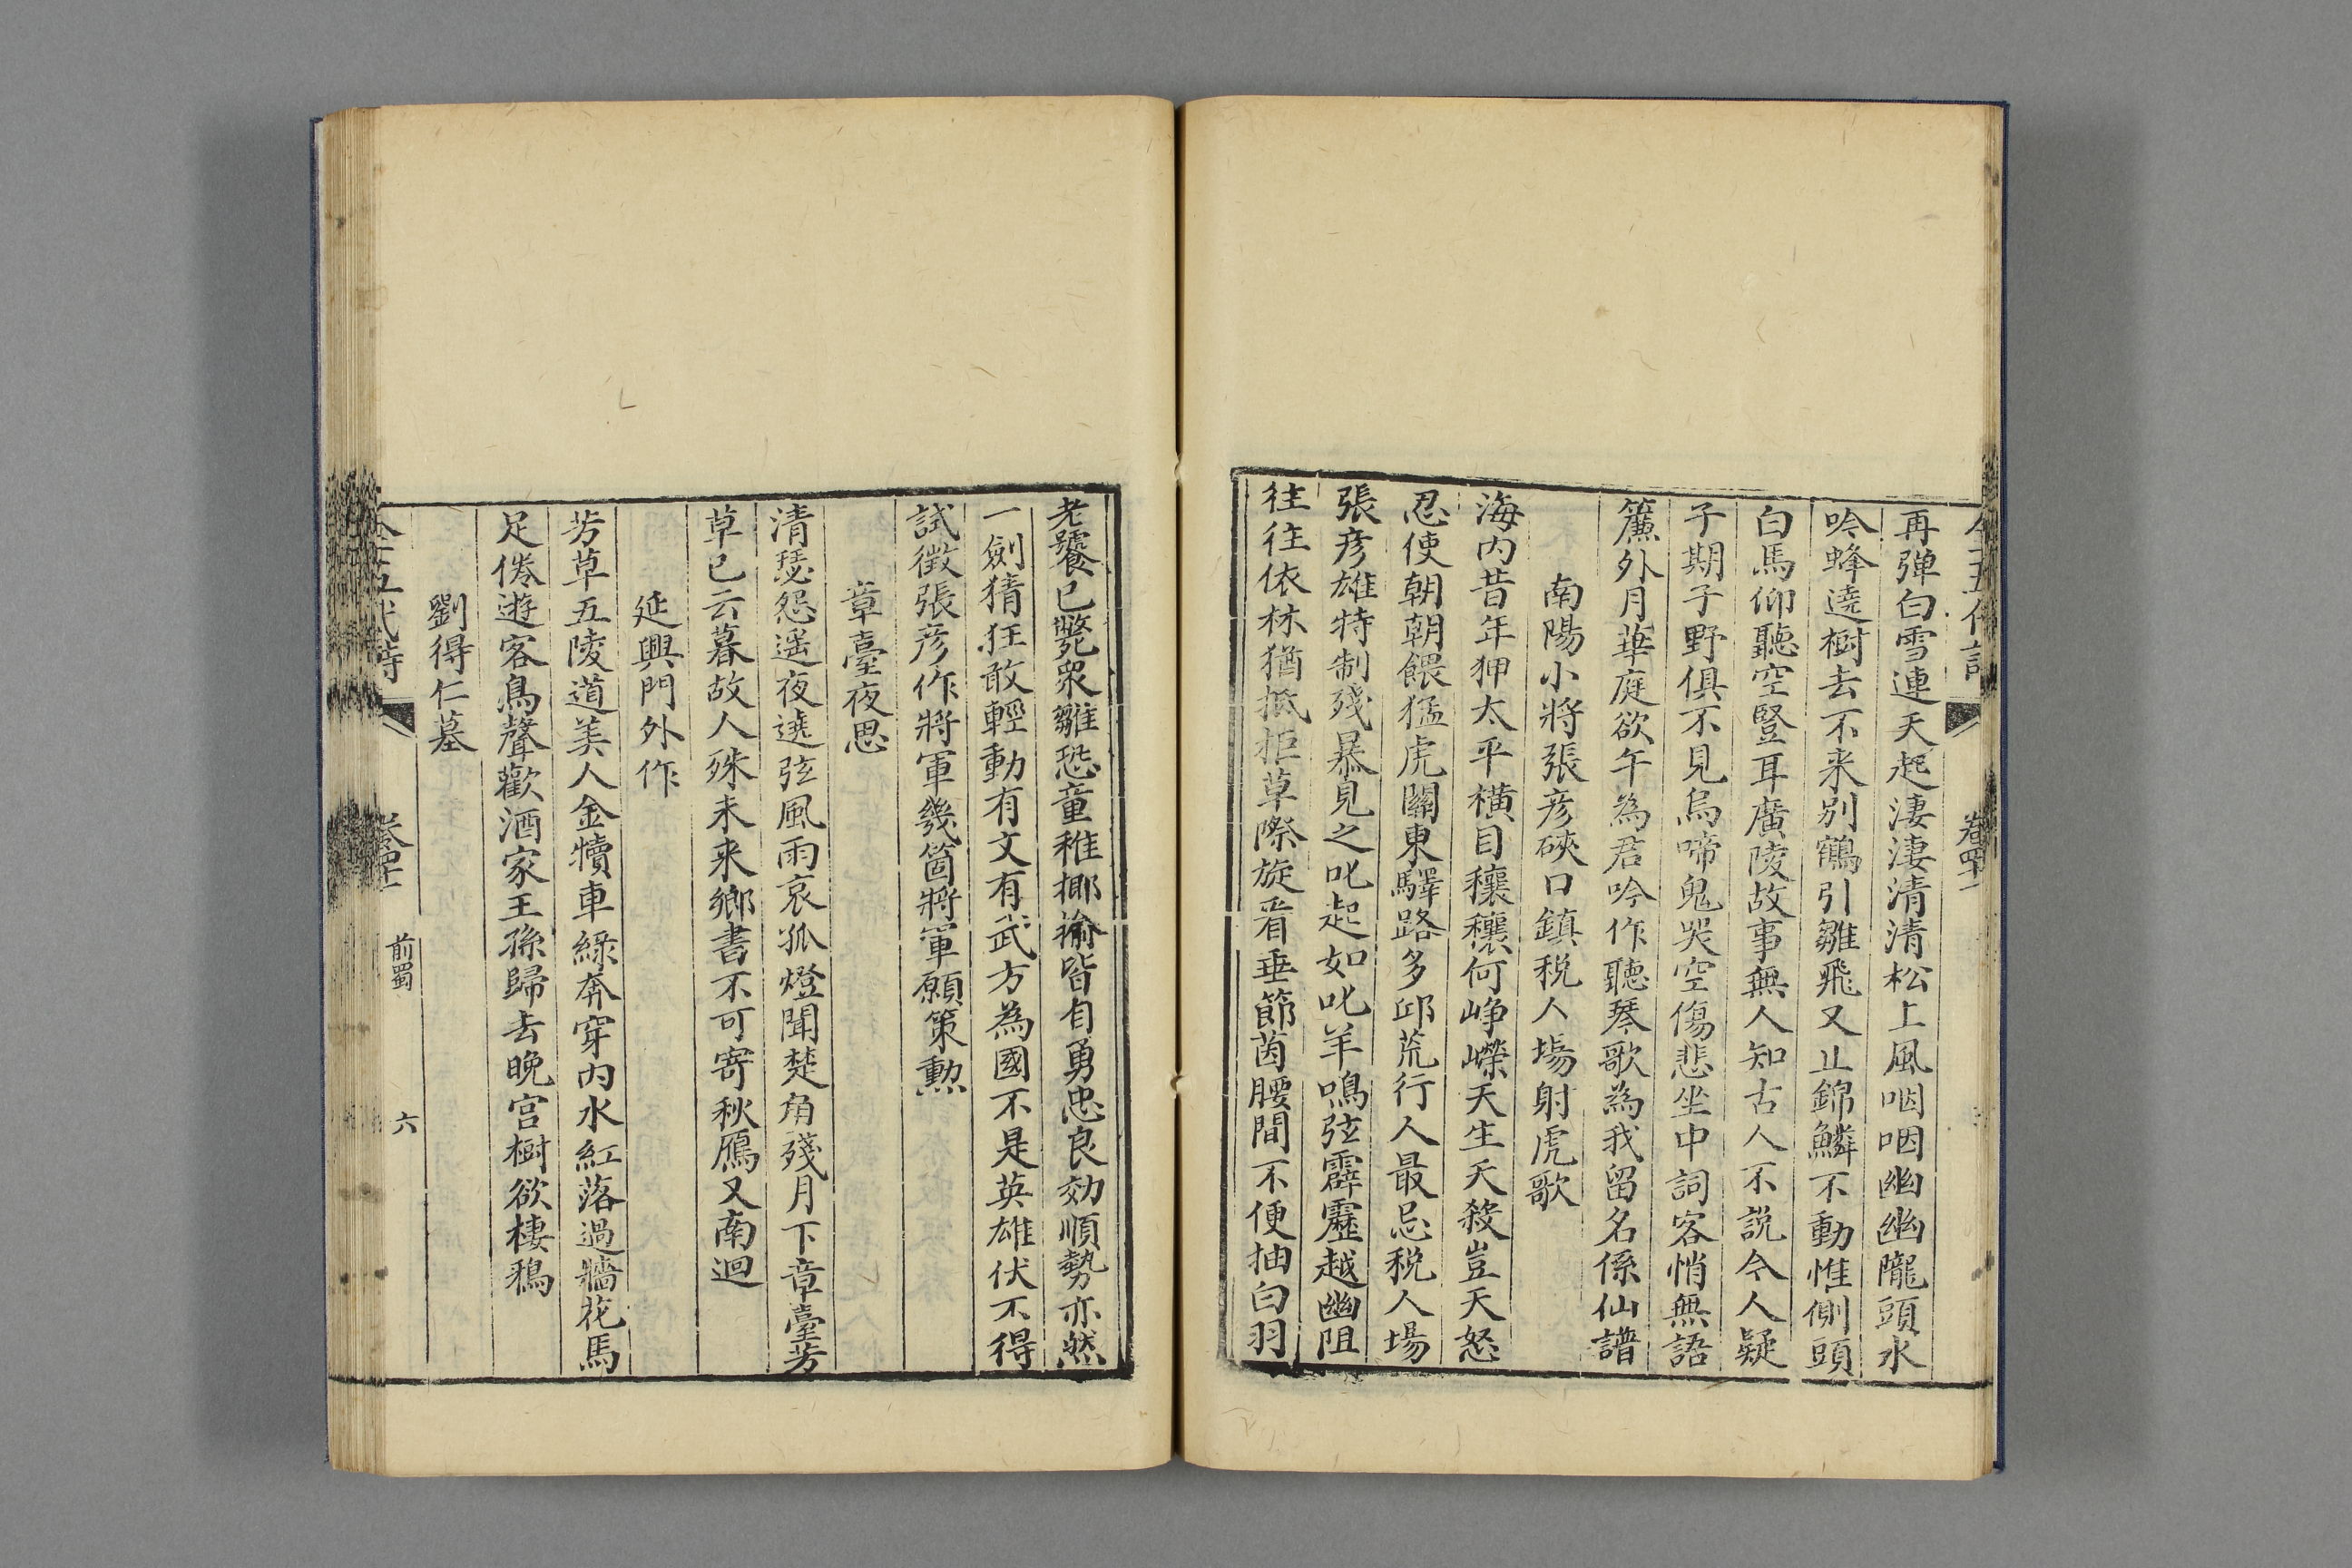 再彈白雪連天起淒淒清清松上風咽咽幽幽隴頭水
吟蜂遶樹去不来别鶴引雛飛又止錦鱗不動惟側頭
白馬仰聽空豎耳廣陵故事無人知古人不説今人疑
子期子野俱不見烏啼鬼哭空傷悲坐中詞客悄無語
簾外月華庭欲午為君吟作聽琴歌為我留名係仙譜
南陽小將張彥硤口鎮税人塲射虎歌
海内昔年狎太平橫目穰穰何崢嶸天生天殺豈天怒
忍使朝朝餵猛虎關東驛路多邱荒行人最忌税人場
張彥雄特制殘暴見之叱起如叱羊鳴弦霹靂越幽阻
往往依林猶抵拒草際旋看垂節茵腰間不便抽白羽
老饕已斃衆雛恐童稚揶揄皆自勇忠良効順勢亦然
一劍猜狂敢輕動有文有武方為國不是英雄伏不得
試徵張彥作將軍幾箇將軍願策勲
章臺夜思
清瑟怨遥夜遶弦風雨哀孤燈聞楚角殘月下章臺芳
草已云暮故人殊未来鄉書不可寄秋鴈又南迴
延興門外作
芳草五陵道美人金犢車綠奔穿内水紅落過牆花馬
足倦遊客鳥聲歡酒家王孫歸去晚宫樹欲棲鴉
劉得仁墓
前蜀
六